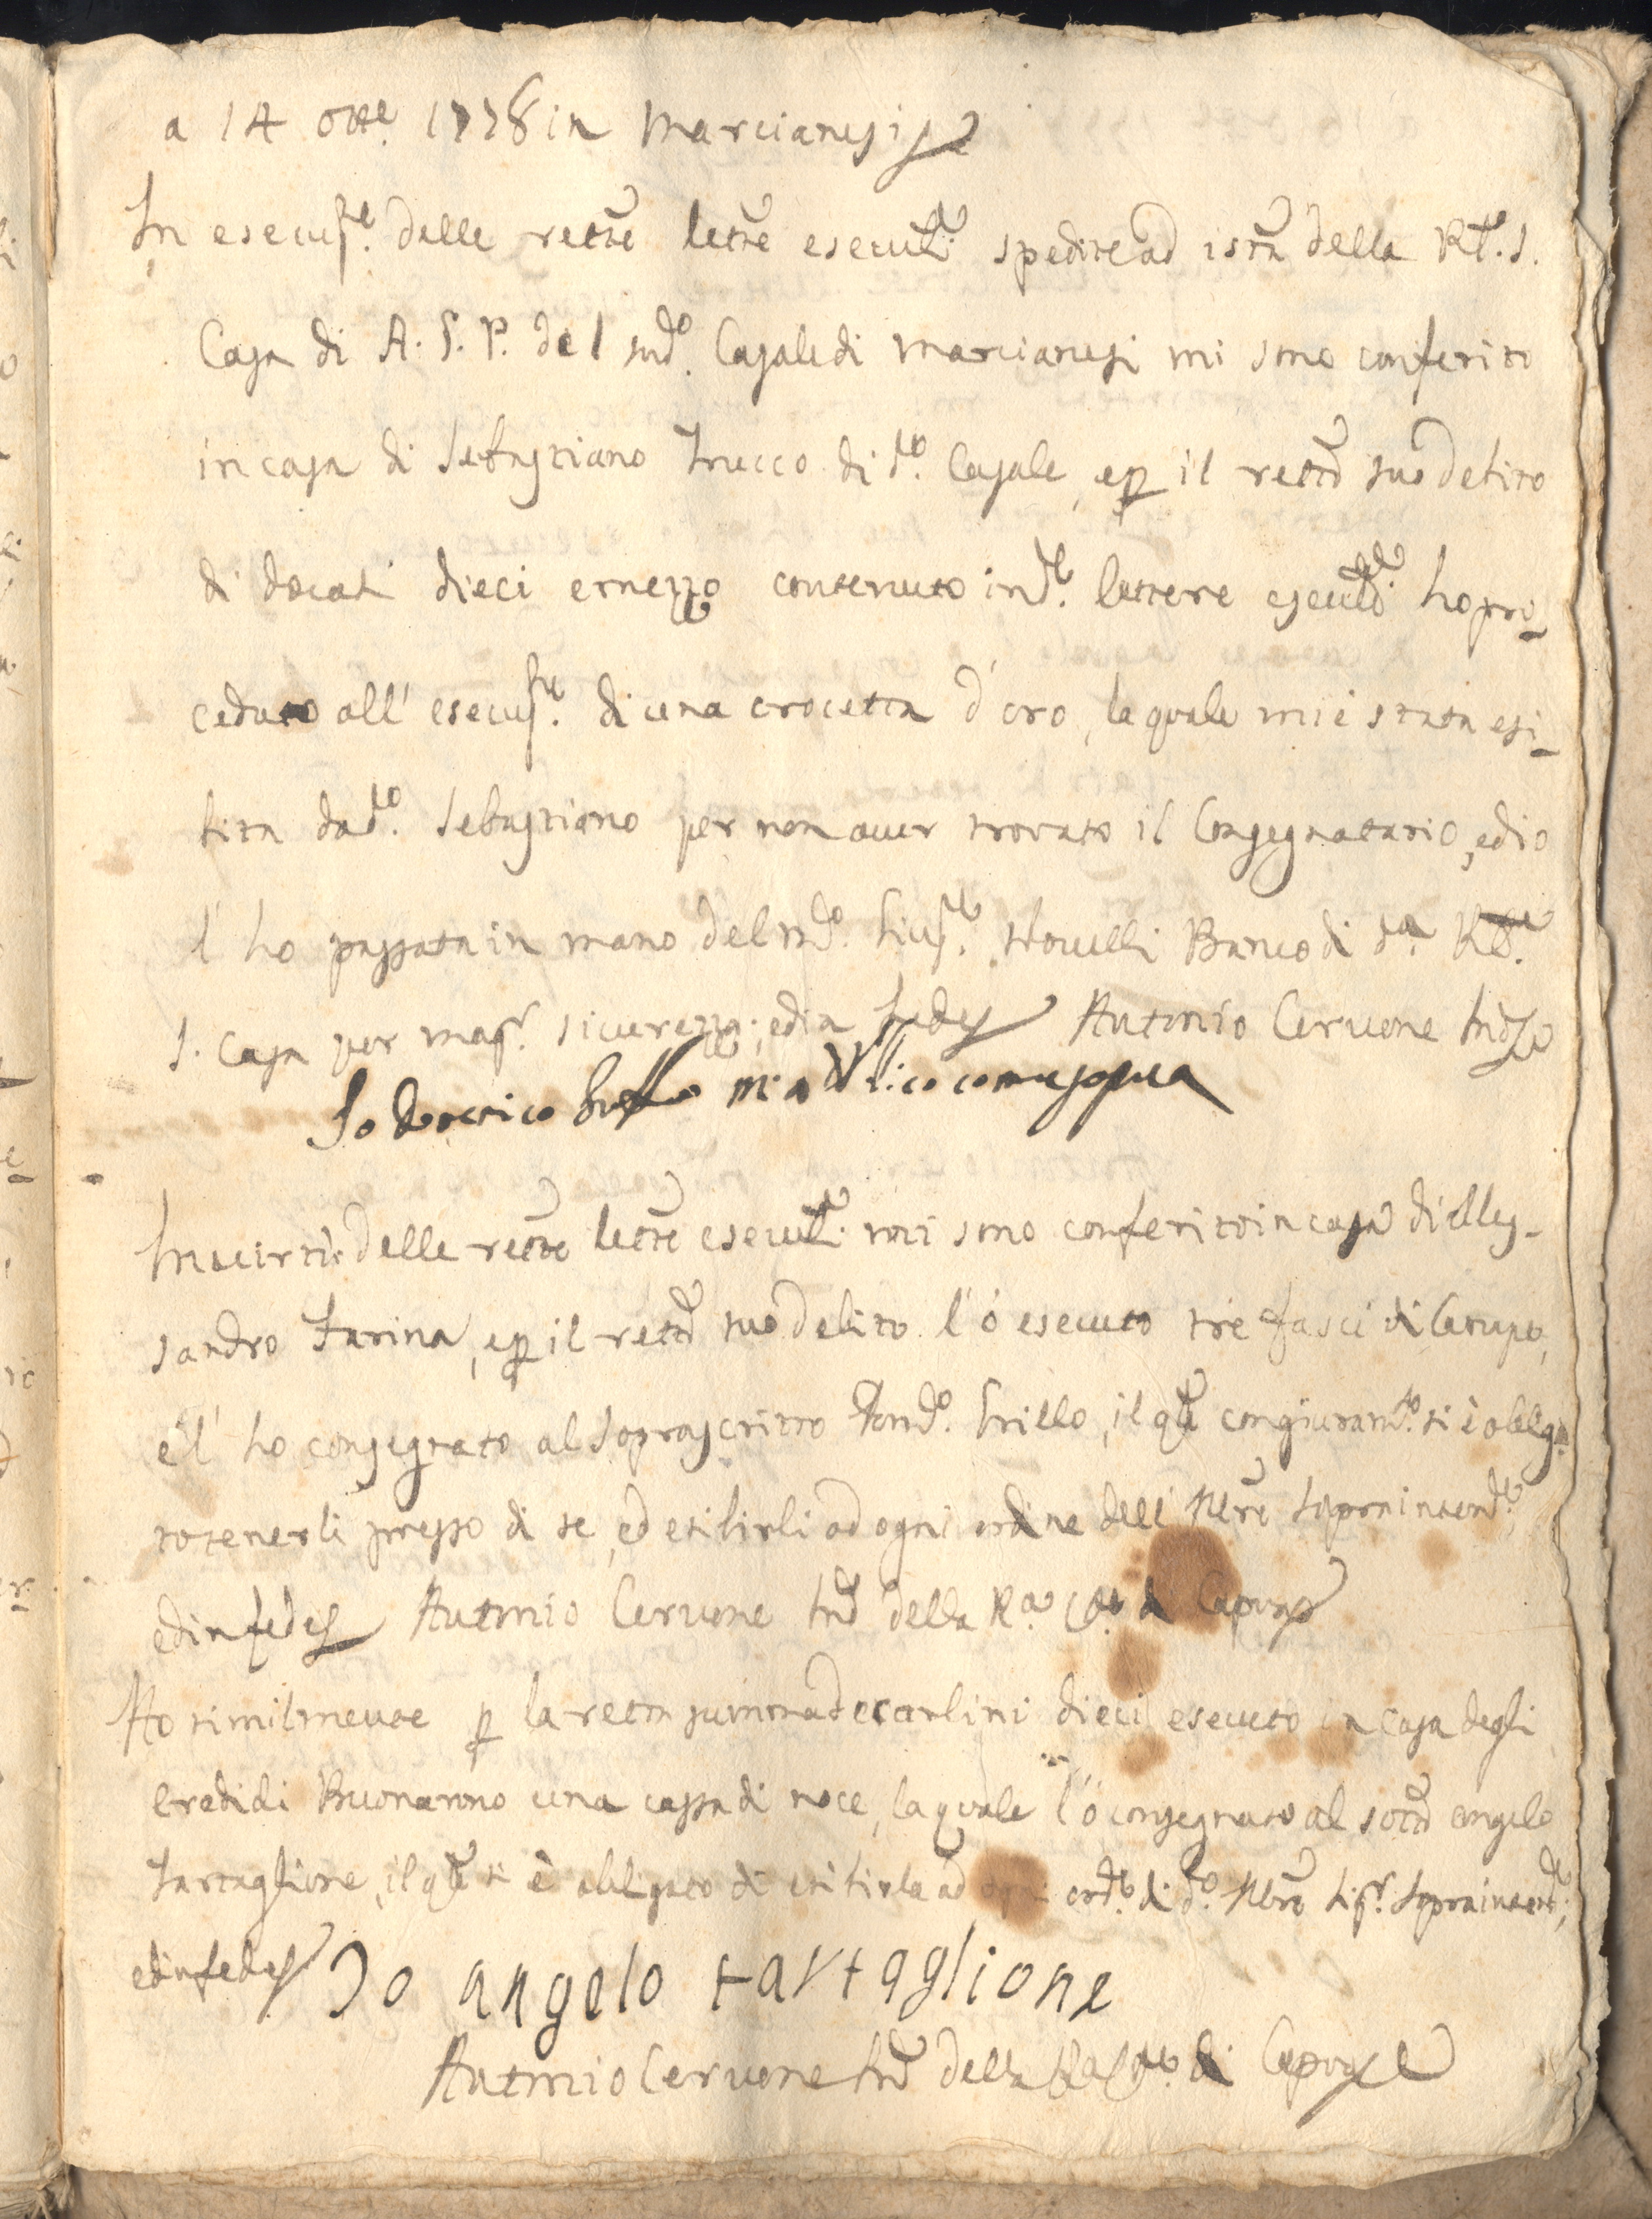 a 14 8tte. 1778 in Marcianesi
In esecuz.e delle rettre lettre esecut.le spedite ad istza della Rl. S.
Casa di A. G. P. del sud.o Casale di Marcianesi mi sono conferito
in casa di Sebastiano Trucco di d.o Casale, e p il rettro suo debito
di docati dieci e mezzo contenuto in d.e lettere esecut.le ho pro-
ceduto all' esecuz.e di una crocetta d'oro, la quale mi è stata esi-
bita da d.o Sebastiano per non aver trovato il Consegnatario, ed io
l' ho passata in mano del md.o Gius.e Novelli Banco di d.a Rl.
S. Casa per mag.r sicurezza; ed in fede Antonio Cervone
Io Domenico
In virtù delle rettre lettre esecut.le mi sono conferito in casa di Ales-
sandro Farina, e p il rettro suo debito l'ò esecuto tre fasci di Canupe,
e l' ho consegnato al soprascritto Dom.o Grillo, il qle con giuram.to si è obliga
to tenerli presso di se, ed esibirli ad ogni ordine dell' Illre Soprainten.te
ed in fede Antonio Cervone della R.a C.te di Capua
Ho similmente p la retta summa de carlini dieci esecuto in casa degli
Eredi di Buonanno una cassa di noce, la quale l'ò consegnato al sottto Angelo
Tartaglione, il qle si è obligato di esibirla ad ogni ord.e di d.o Illre Sig.r Soprainten.te;
ed in fede Io angelo tartaglione
Antonio Cervone della R.a C.te di Capua